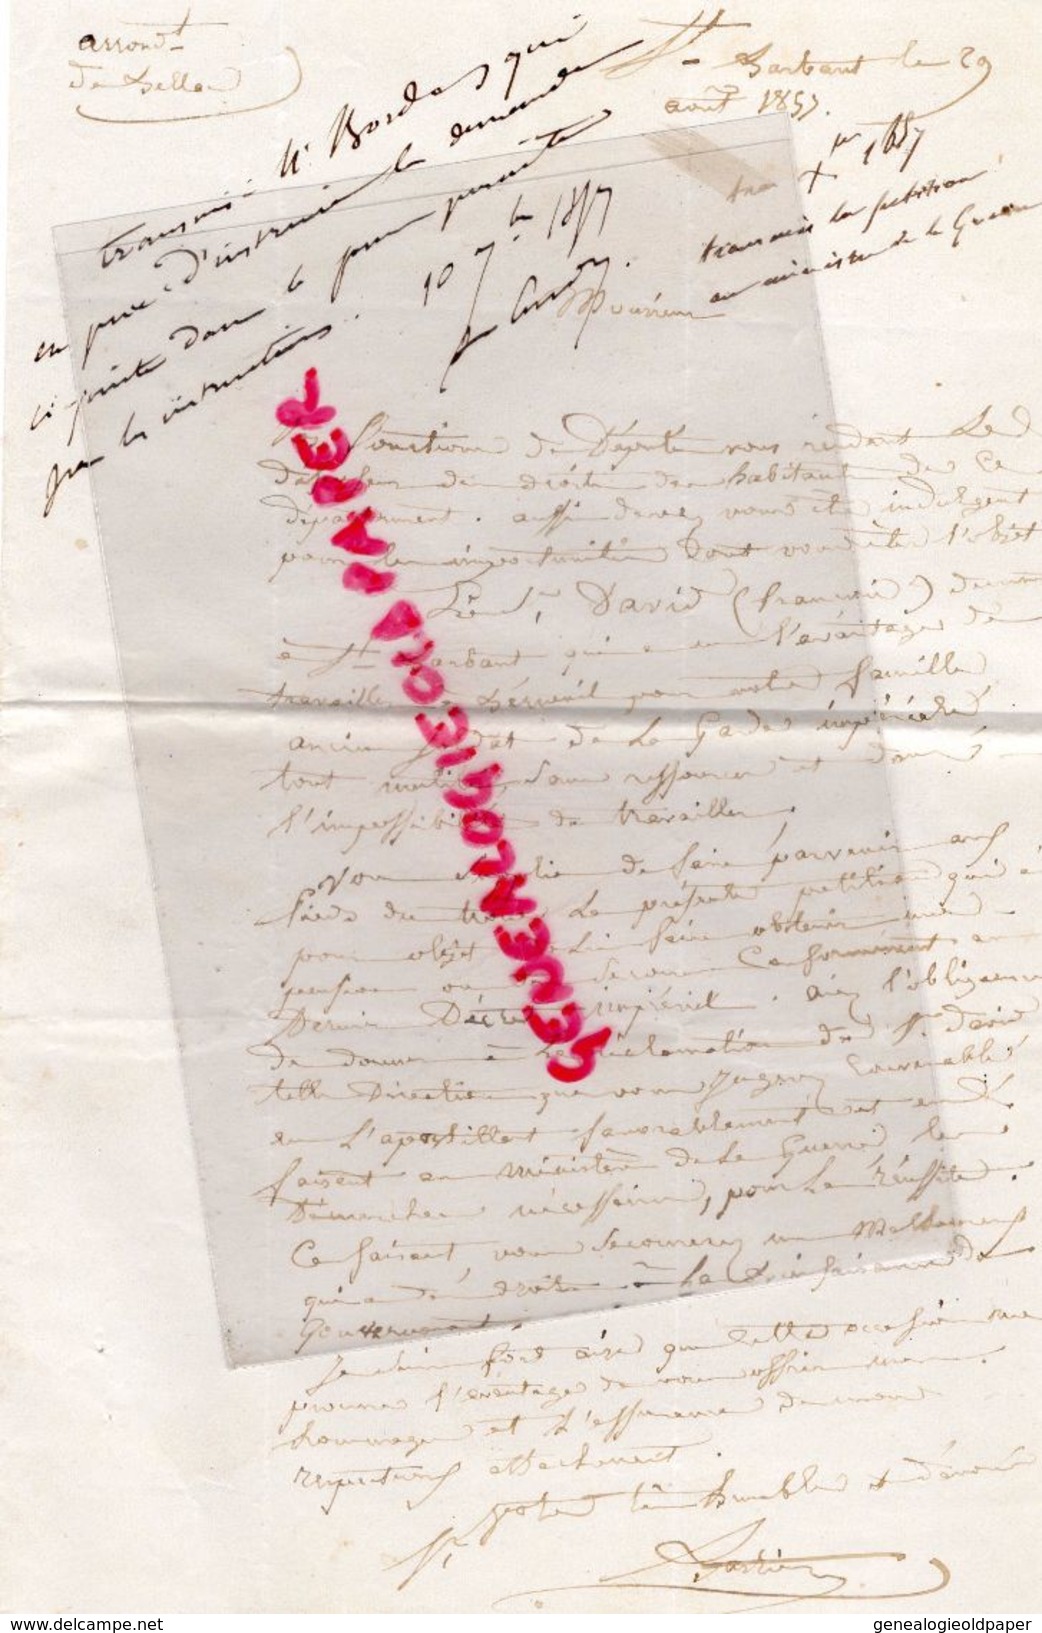 arrond.t
De Bellac
St Barbant le 29
août 1857.
transmis à Mr Bordas qui
en prie d'instruire la demande
ci jointe dans le
par les instructions.
10 7bre 1857
Xbre 1857
transmis la petition
au ministre de la Guerre
Monsieur
fonctions de Député vous rendent Le
de droits des habitants de Ce
département. aussi devez vous être indulgent
pour les importunités Dont vous êtes l'objet
Le Sr. David (françois)
à St Barbant qui a eu l'avantage de
travailler à pour votre famille
ancien soldat de La Garde impériale
tout mutilé, sans ressources et dans
l'impossibilité de travailler.
Vous supplie de faire parvenir aux
Pieds du trône La présente pétition qui a
pour objet de lui faire obtenir une
pension ou un secours Conformément au
Dernier Décret impérial. aiez l'obligeance
de donner à La réclamation du Sr David
telle Direction que vous jugerez Convenable
en L'apostillant favorablement et en
faisant au ministère de La Guerre les
Démarches nécessaires, pour La réussite.
Ce faisant, vous secourerez un Malheureux
qui a des droits à La Bienfaisance du
Gouvernement.
Je suis fort aise que cette occasion me
procure l'avantage de vous offrir mes
hommages et L'assurance de mon
respectueux attachement.
votre très humble & dévoué
Sr.
GENEALOGIE OLD PAPER
genealogieoldpaper
www.delcampe.net